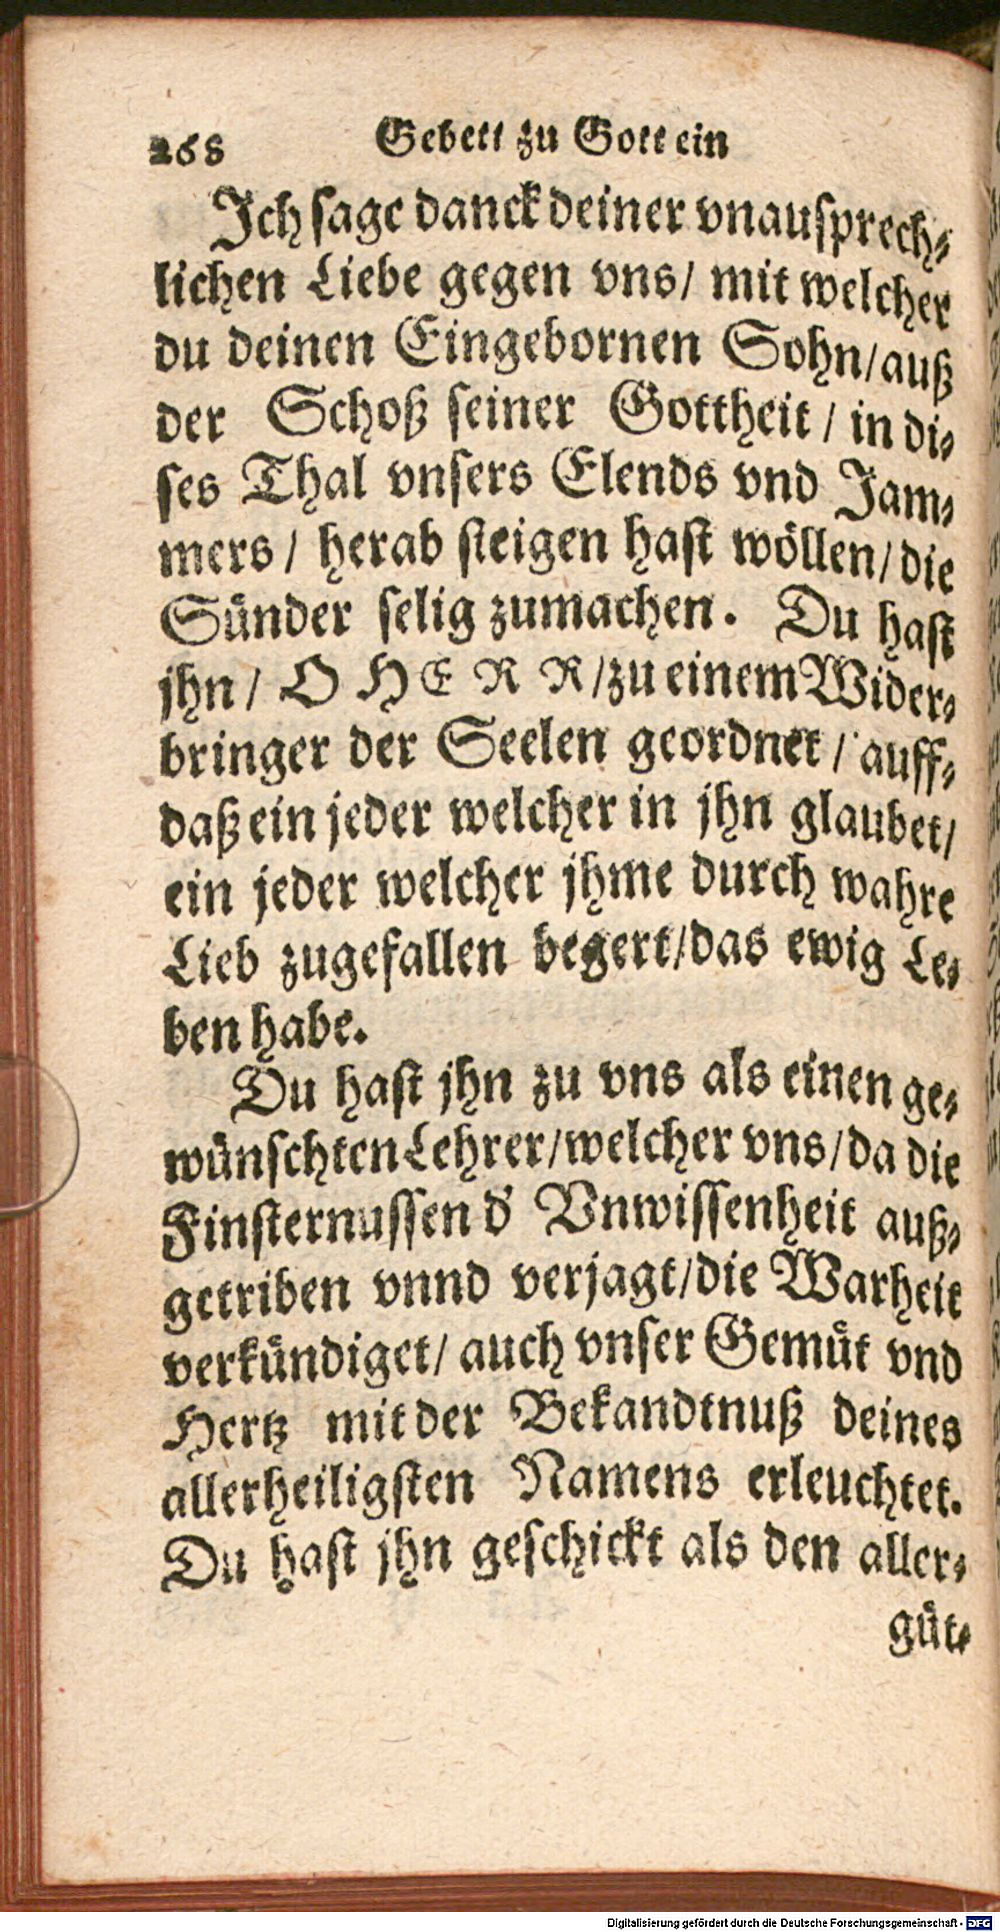 268 Gebett zu Gott ein
Ich sage danck deiner vnausprech-
lichen Liebe gegen vns/ mit welcher
du deinen Eingebornen Sohn/ auß
der Schoß seiner Gottheit/ in di-
ses Thal vnsers Elends vnd Jam-
mers/ herab steigen hast wöllen/ die
Sünder selig zumachen. Du hast
jhn/ O HERR/ zu einem Wider-
bringer der Seelen geordnet/ auff-
daß ein jeder welcher in jhn glaubet/
ein jeder welcher jhme durch wahre
Lieb zugefallen begert/ das ewig Le-
ben habe.
Du hast jhn zu vns als einen ge-
wünschten Lehrer/ welcher vns/ da die
Finsternussen d' Vnwissenheit auß-
getriben vnnd verjagt/ die Warheit
verkündiget/ auch vnser Gemüt vnd
Hertz mit der Bekandtnuß deines
allerheiligsten Namens erleuchtet.
Du hast jhn geschickt als den aller-
güt-
Digitalisierung gefördert durch die Deutsche Forschungsgemeinschaft - DFG